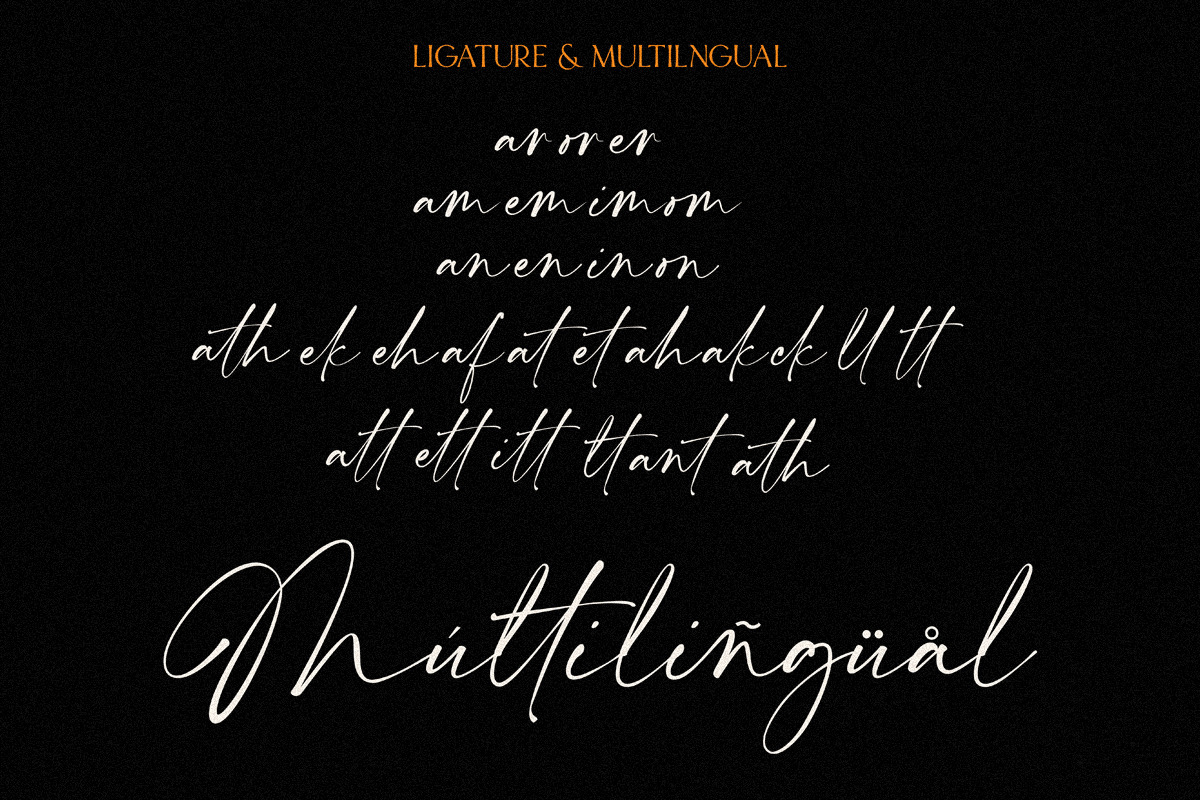 LIGATURE & MULTILNGUAL
ar or er
am em im om
an en in on
ath ek eh af at et ah ak ck ll tt
att ett itt lt ant ath
Múltiliñgüål